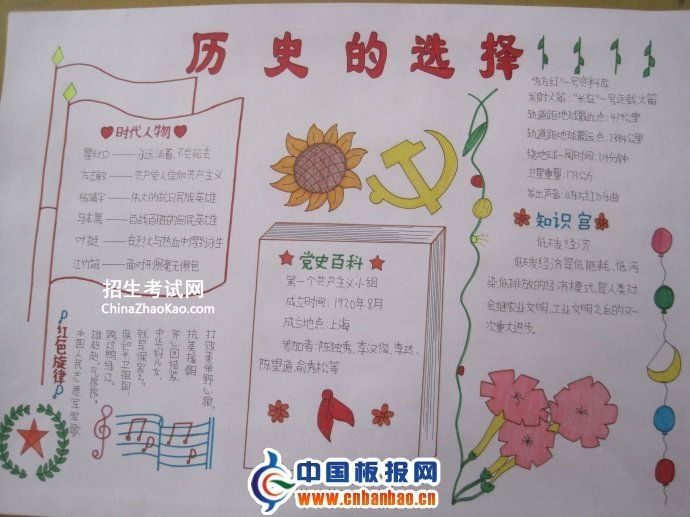 历史的选择
时代人物
瞿秋白——永远活着,不会死去
方志敏——共产党人信仰共产主义
杨靖宇——伟大的抗日民族英雄
马本斋——百战百胜的回民英雄
叶挺——在烈火与热血中得到永生
江竹筠——面对刑具毫无惧色
招生考试网
ChinaZhaoKao.com
红色旋律
中国人民志愿军军歌
雄赳赳,气昂昂,
跨过鸭绿江,
保和平,卫祖国,
就是保家乡。
中华好儿女,
齐心团结紧,
抗美援朝,
打败美帝野心狼。
党史百科
第一个共产主义小组
成立时间:1920年8月
成立地点:上海
参加者:陈独秀、李汉俊、李达、
陈望道、俞秀松等
"东方红"一号资料库
发射火箭:"长征"一号运载火箭
轨道距地球最近点:439公里
轨道距地球最远点:2384公里
绕地球一周时间:114分钟
卫星重量:173公斤
发出声音:《东方红》乐曲
知识宫
低碳经济
低碳经济是低能耗、低污
染、低排放的经济模式,是人类社
会继农业文明、工业文明之后的又一
次重大进步。
中国板报网
www.cnbanbao.cn